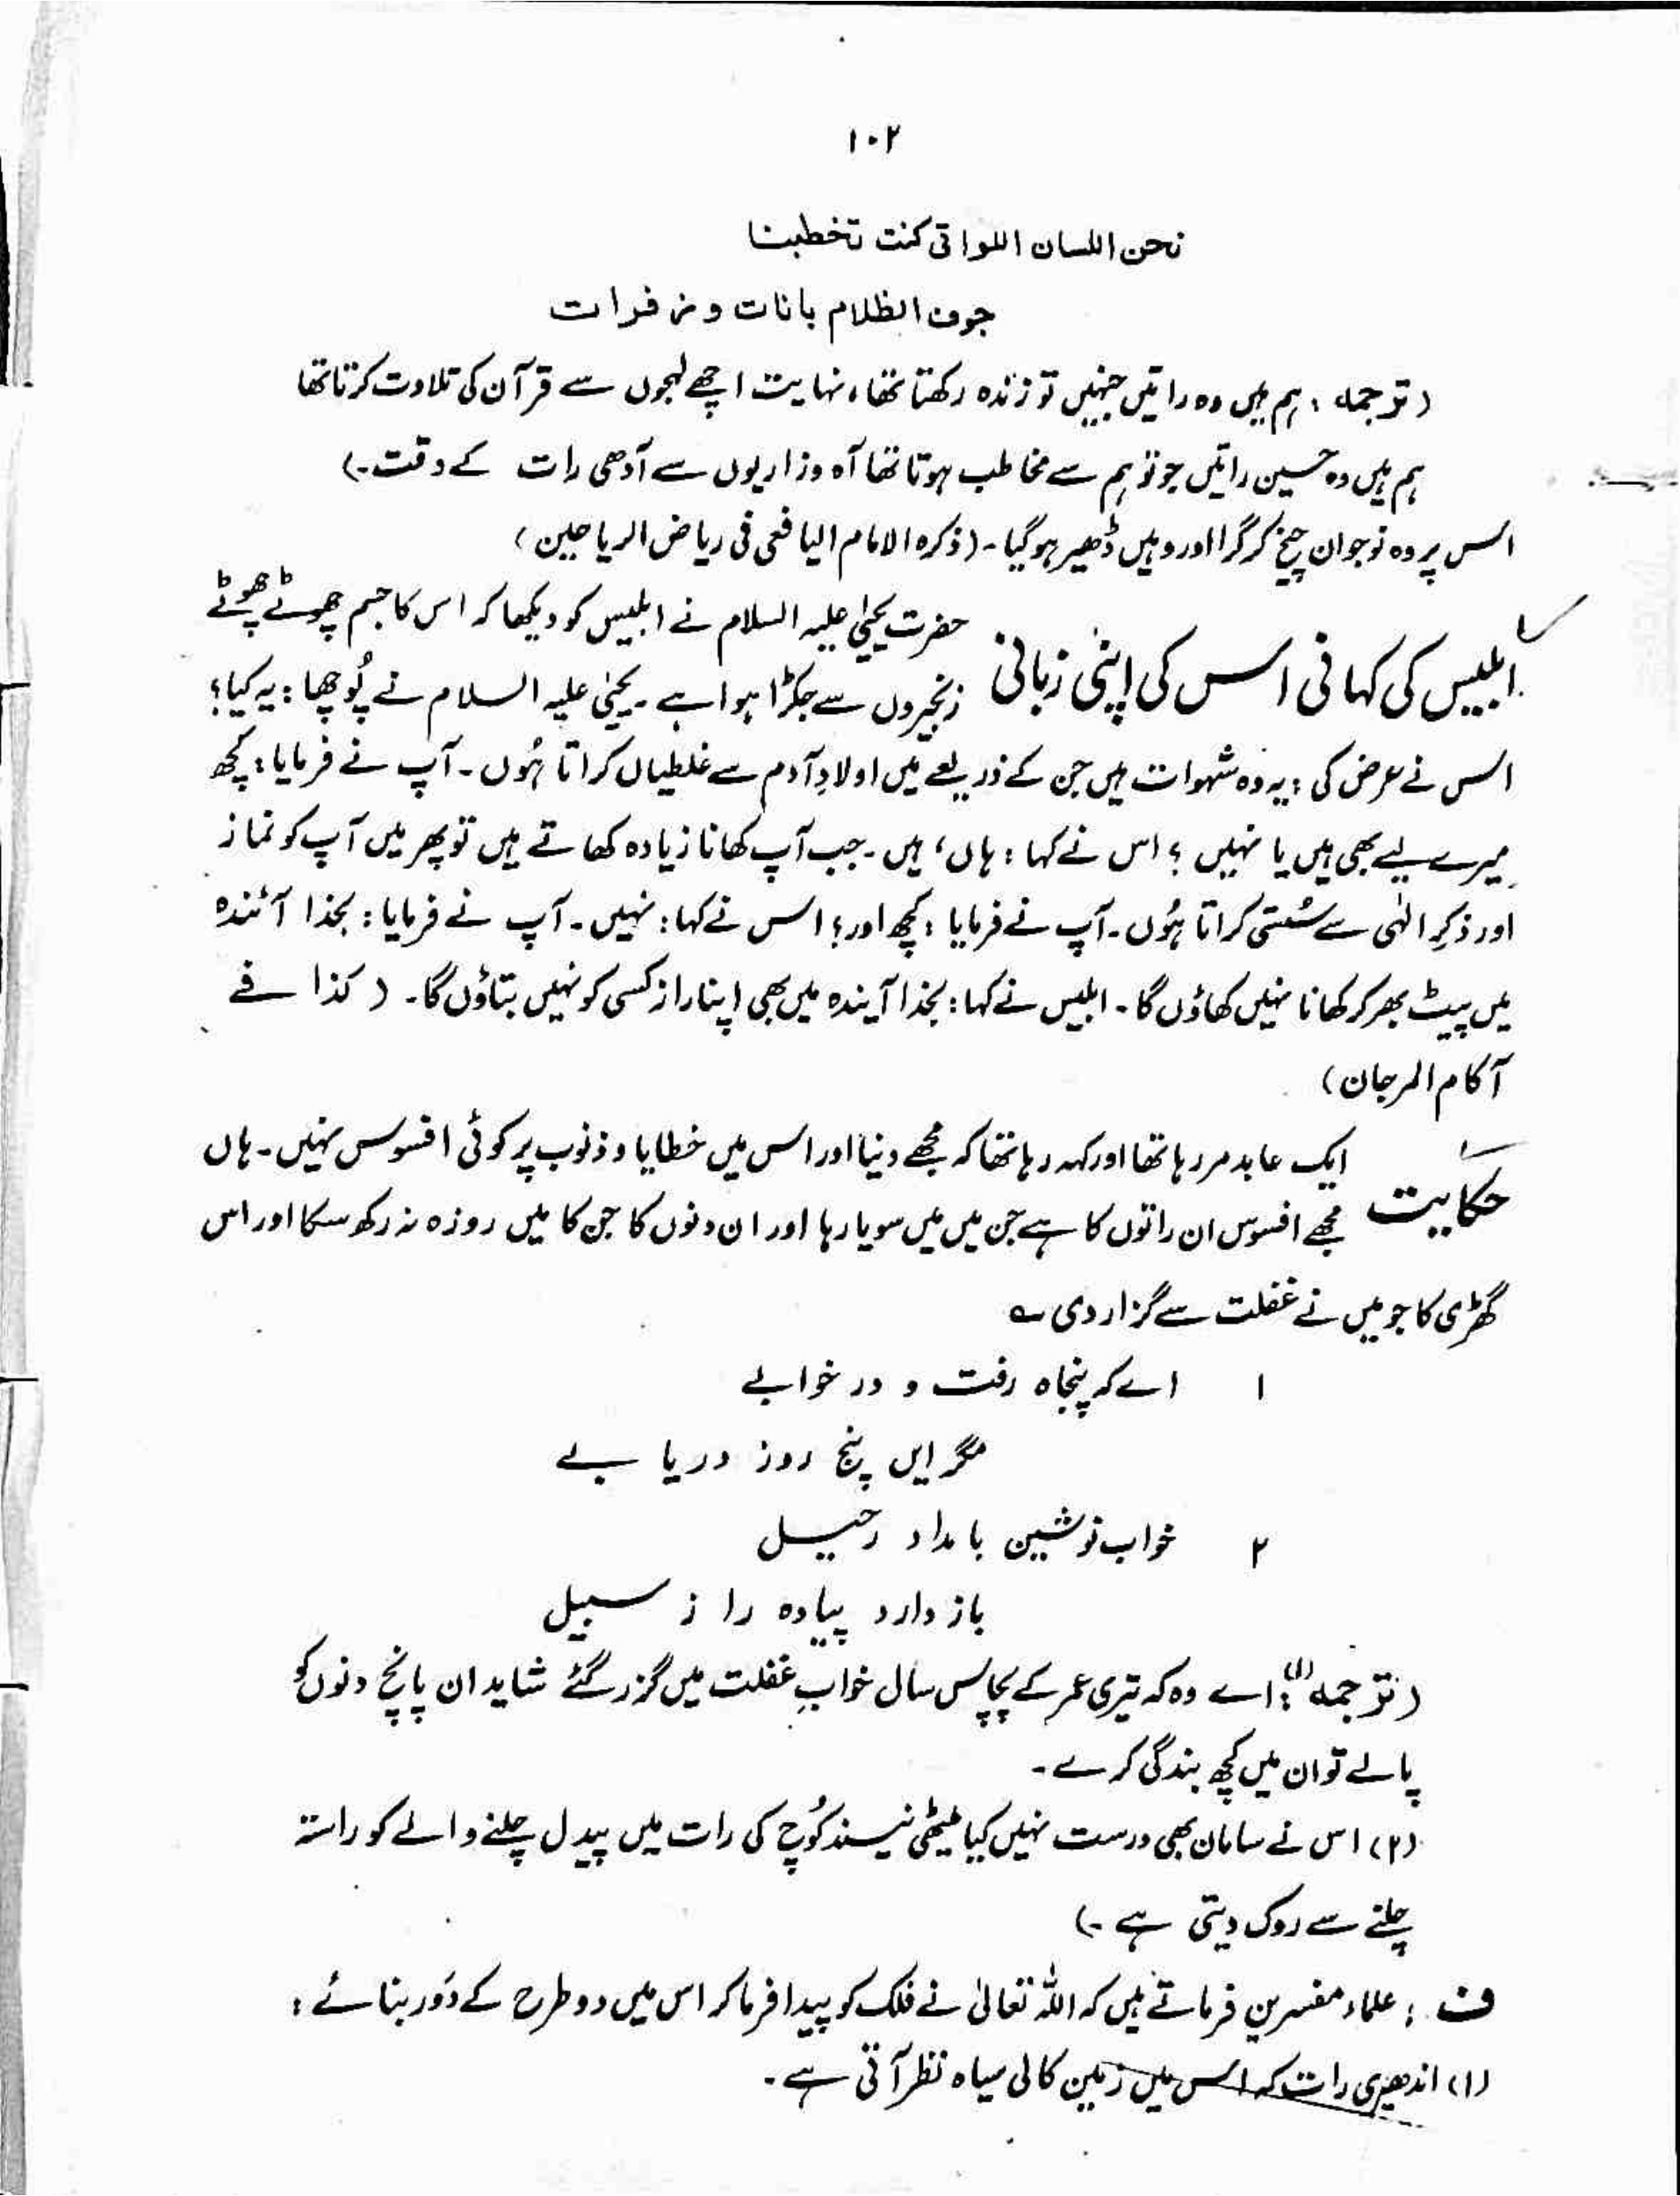 ۱۰۲
نحن اللسان اللواتی کنت تخطبنا
جوف الظلام بانات و زفرات
(ترجمہ : ہم ہیں وہ راتیں جنہیں تو زندہ رکھتا تھا، نہایت اچھے لہجوں سے قرآن کی تلاوت کرتا تھا
ہم ہیں وہ حسین راتیں جو تو ہم سے مخاطب ہوتا تھا آہ و زاریوں سے آدھی رات کے وقت۔)
اس پر وہ نوجوان چیخ کر گرا اور وہیں ڈھیر ہو گیا۔ (ذکرہ الامام الیافعی فی ریاض الریاحین)
ابلیس کی کہانی اس کی اپنی زبانی
حضرت یحییٰ علیہ السلام نے ابلیس کو دیکھا کہ اس کا جسم چھوٹے چھوٹے
زنجیروں سے جکڑا ہوا ہے۔ یحییٰ علیہ السلام نے پُوچھا : یہ کیا؟
اس نے عرض کی : یہ وہ شہوات ہیں جن کے ذریعے میں اولادِ آدم سے غلطیاں کراتا ہُوں۔ آپ نے فرمایا : کچھ
میرے لیے بھی ہیں یا نہیں ؟ اس نے کہا : ہاں، ہیں۔ جب آپ کھانا زیادہ کھاتے ہیں تو پھر میں آپ کو نماز
اور ذکرِ الٰہی سے سُستی کراتا ہُوں۔ آپ نے فرمایا : کچھ اور؟ اس نے کہا : نہیں۔ آپ نے فرمایا : بخدا آئندہ
میں پیٹ بھر کر کھانا نہیں کھاؤں گا۔ ابلیس نے کہا : بخدا آیندہ میں بھی اپنا راز کسی کو نہیں بتاؤں گا۔ (کذا فے
آکام المرجان)
حکایت
ایک عابد مر رہا تھا اور کہہ رہا تھا کہ مجھے دنیا اور اس میں خطایا و ذنوب پر کوئی افسوس نہیں۔ ہاں
مجھے افسوس ان راتوں کا ہے جن میں میں سویا رہا اور ان دنوں کا جن کا میں روزہ نہ رکھ سکا اور اس
گھڑی کا جو میں نے غفلت سے گزار دی ؎
۱ اے کہ پنجاہ رفت و در خوابے
مگر ایں پنج روز دریابے
۲ خواب نوشین بامداد رحیل
باز دارد پیادہ را ز سبیل
(ترجمہ (۱): اے وہ کہ تیری عمر کے پچاس سال خوابِ غفلت میں گزر گئے شاید ان پانچ دنوں کو
پالے تو ان میں کچھ بندگی کرے۔
(۲) اس نے سامان بھی درست نہیں کیا میٹھی نیند کُوچ کی رات میں پیدل چلنے والے کو راستہ
چلنے سے روک دیتی ہے۔)
ف : علماء مفسرین فرماتے ہیں کہ اللہ تعالیٰ نے فلک کو پیدا فرما کر اس میں دو طرح کے دَور بنائے :
(۱) اندھیری رات کہ اس میں زمین کالی سیاہ نظر آتی ہے۔